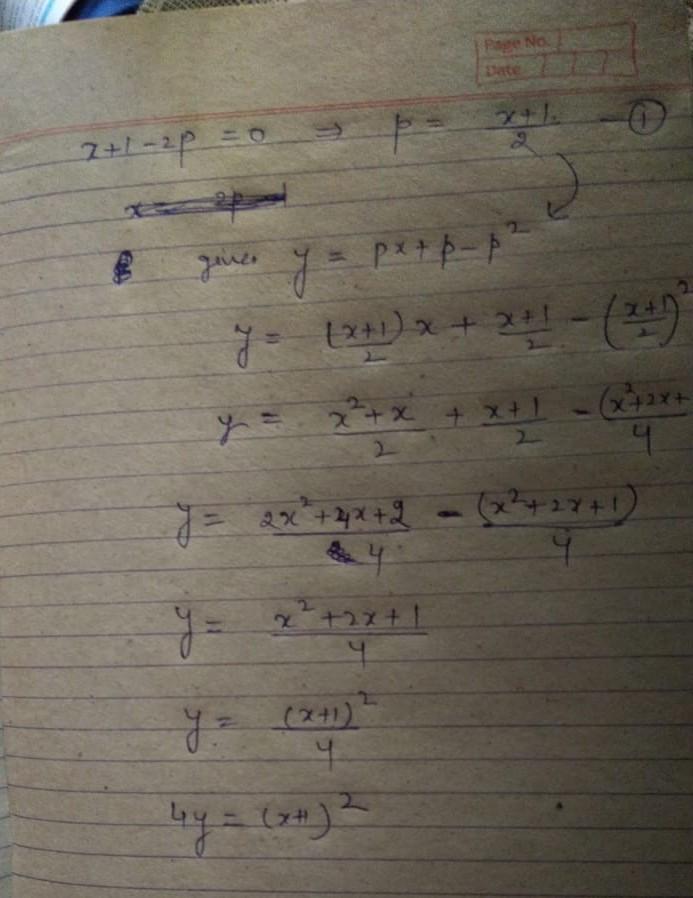 Page No.
Date
x+1-2p = 0 ⇒ p = (x+1)/2 - ①
given y = px + p - p²
y = (x+1)/2 x + x+1/2 - (x+1/2)²
y = x²+x/2 + x+1/2 - (x²+2x+/4
y = 2x²+4x+2/4 - (x²+2x+1)/4
y = x²+2x+1/4
y = (x+1)²/4
4y = (x+1)²